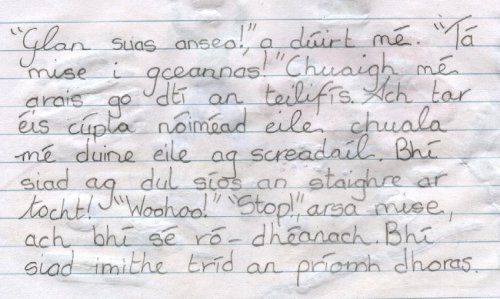 "Glan suas anseo!," a dúirt mé. "Tá
mise i gceannas!" Chuaigh mé
arais go dtí an teilifís. Ach tar
éis cúpla nóiméad eile chuala
mé duine eile ag screadaíl. Bhí
siad ag dul síos an staighre ar
tocht! "Woohoo!" "Stop!", arsa mise,
ach bhí sé ró-dhéanach. Bhí
siad imithe tríd an príomh dhoras.